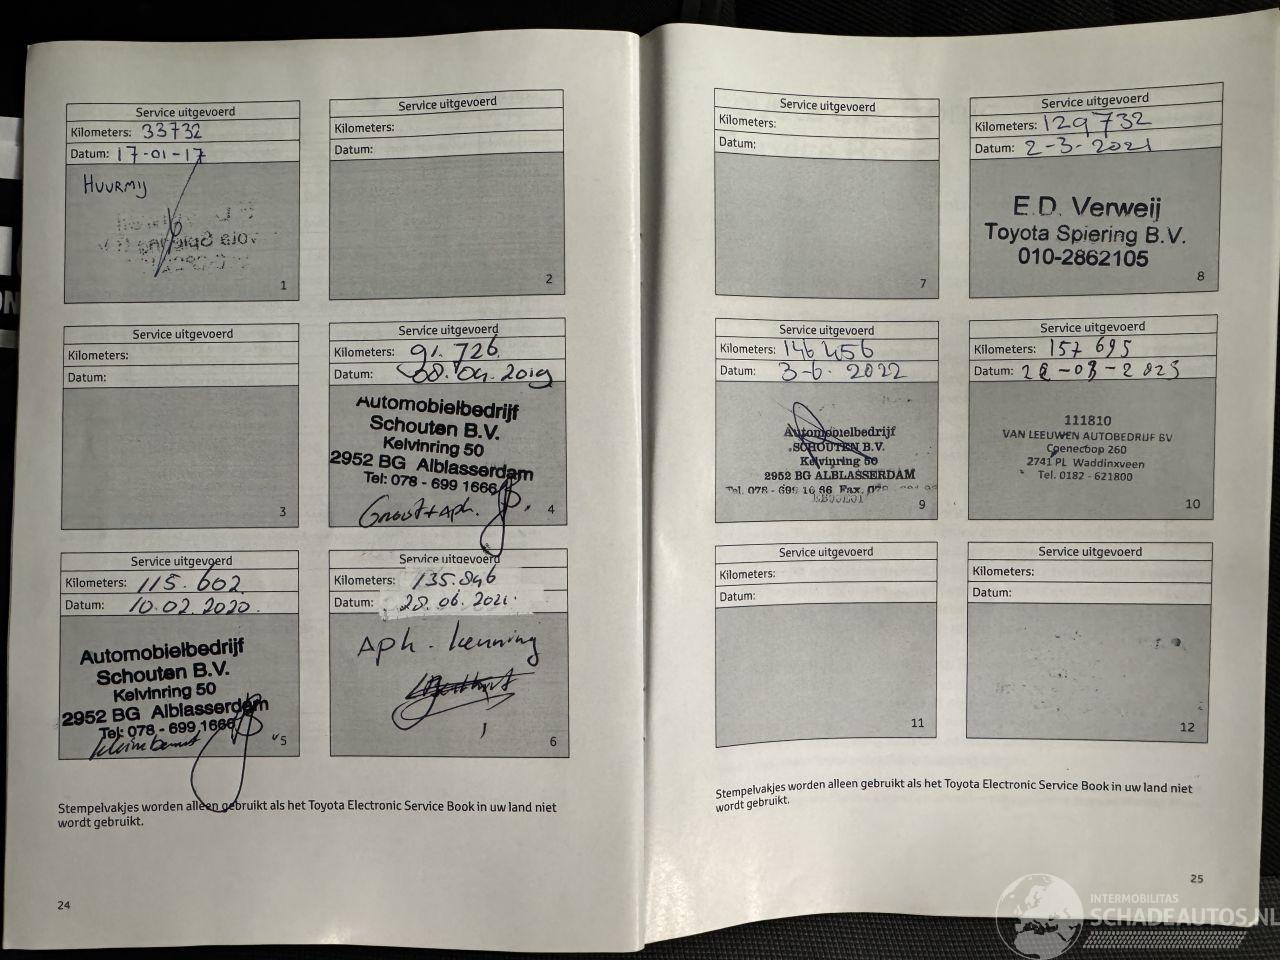 Service uitgevoerd
Kilometers: 33732
Datum: 17-01-17
HUURMIJ
1
Service uitgevoerd
Kilometers:
Datum:
2
Service uitgevoerd
Kilometers:
Datum:
3
Service uitgevoerd
Kilometers: 91.726
Datum: 08.04.2019
Automobielbedrijf
Schouten B.V.
Kelvinring 50
2952 BG Alblasserdam
Tel: 078 - 699 1666
4
Service uitgevoerd
Kilometers: 115.602
Datum: 10.02.2020.
Automobielbedrijf
Schouten B.V.
Kelvinring 50
2952 BG Alblasserdam
Tel: 078 - 699 1666
5
Service uitgevoerd
Kilometers: 135.846
Datum: 28.06.2021.
Aph. keuring
6
Stempelvakjes worden alleen gebruikt als het Toyota Electronic Service Book in uw land niet
wordt gebruikt.
24
Service uitgevoerd
Kilometers:
Datum:
7
Service uitgevoerd
Kilometers: 129732
Datum: 2-3-2021
E.D. Verweij
Toyota Spiering B.V.
010-2862105
8
Service uitgevoerd
Kilometers: 146456
Datum: 3-6-2022
Automobielbedrijf
SCHOUTEN B.V.
Kelvinring 50
2952 BG ALBLASSERDAM
Tel. 078 - 699 16 66 Fax.
9
Service uitgevoerd
Kilometers: 157 695
Datum:
111810
VAN LEEUWEN AUTOBEDRIJF BV
Coenecoop 260
2741 PL Waddinxveen
Tel. 0182 - 621800
10
Service uitgevoerd
Kilometers:
Datum:
11
Service uitgevoerd
Kilometers:
Datum:
12
Stempelvakjes worden alleen gebruikt als het Toyota Electronic Service Book in uw land niet
wordt gebruikt.
25
INTERMOBILITAS
SCHADEAUTOS.NL